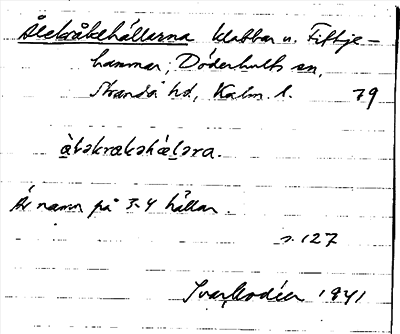 Ålekråkehällarna klabbar u. Fittje-
hammar, Döderhults sn,
Stranda hd, Kalm. l. 79
àləkrakəhälərα.
Är namn på 3-4 hällar.
s. 127
Ivar Modéer 1941